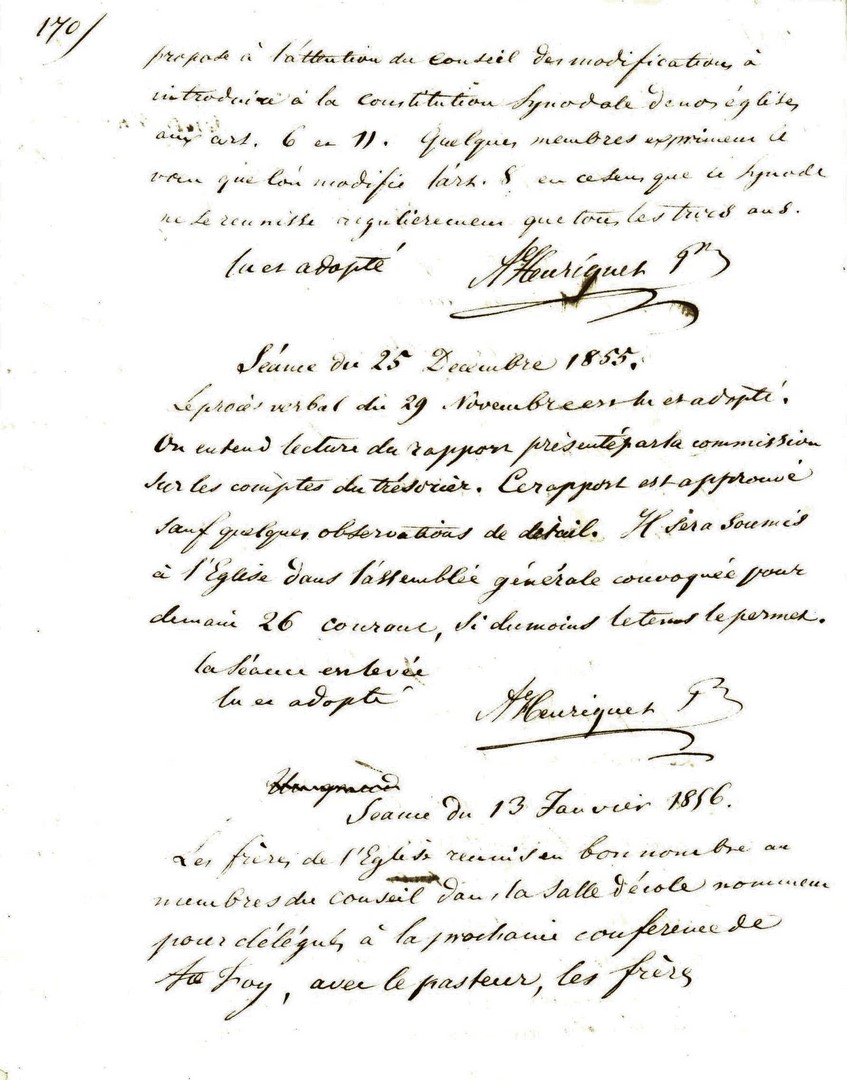 170/
propose à l'attention du Conseil des modifications à
introduire à la Constitution Synodale de nos églises
aux art. 6 et 11. Quelques membres expriment le
vœu que l'on modifie l'art. 8 en ce sens que le Synode
ne se reunisse regulierement que tous les trois ans.
lu et adopté Ate Henriquet Pr
Séance du 25 Decembre 1855.
Le procès verbal du 29 Novembre est lu et adopté.
On entend lecture du rapport présenté par la commission
sur les comptes du trésorier. Ce rapport est approuvé
sauf quelques observations de détail. Il sera soumis
à l'Eglise dans l'assemblée générale convoquée pour
demain 26 courant, si du moins le tems le permet.
la Séance est levée
lu et adopté
Ate Henriquet Pr
Seance du 13 Janvier 1856.
Les frères de l'Eglise reunis en bon nombre au
membres du conseil dans la salle d'école nomment
pour délégués à la prochaine conference de
Foy, avec le pasteur, les frères